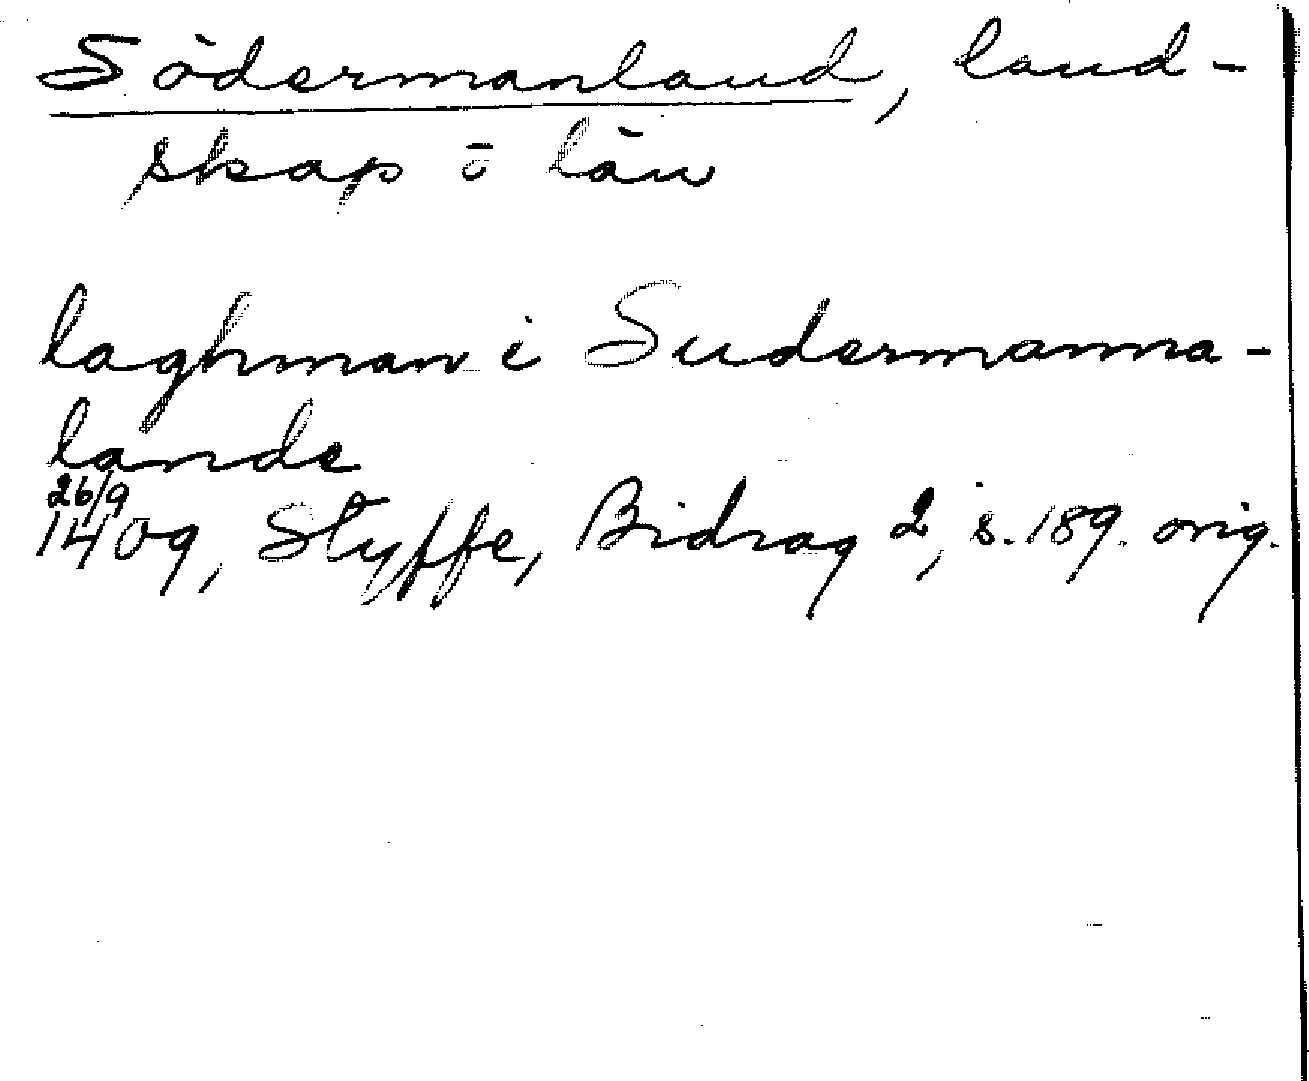 Södermanland, land-
skap o län
laghman i Sudermanna-
lande
26/9
1409, Styffe, Bidrag 2, s. 189. orig.